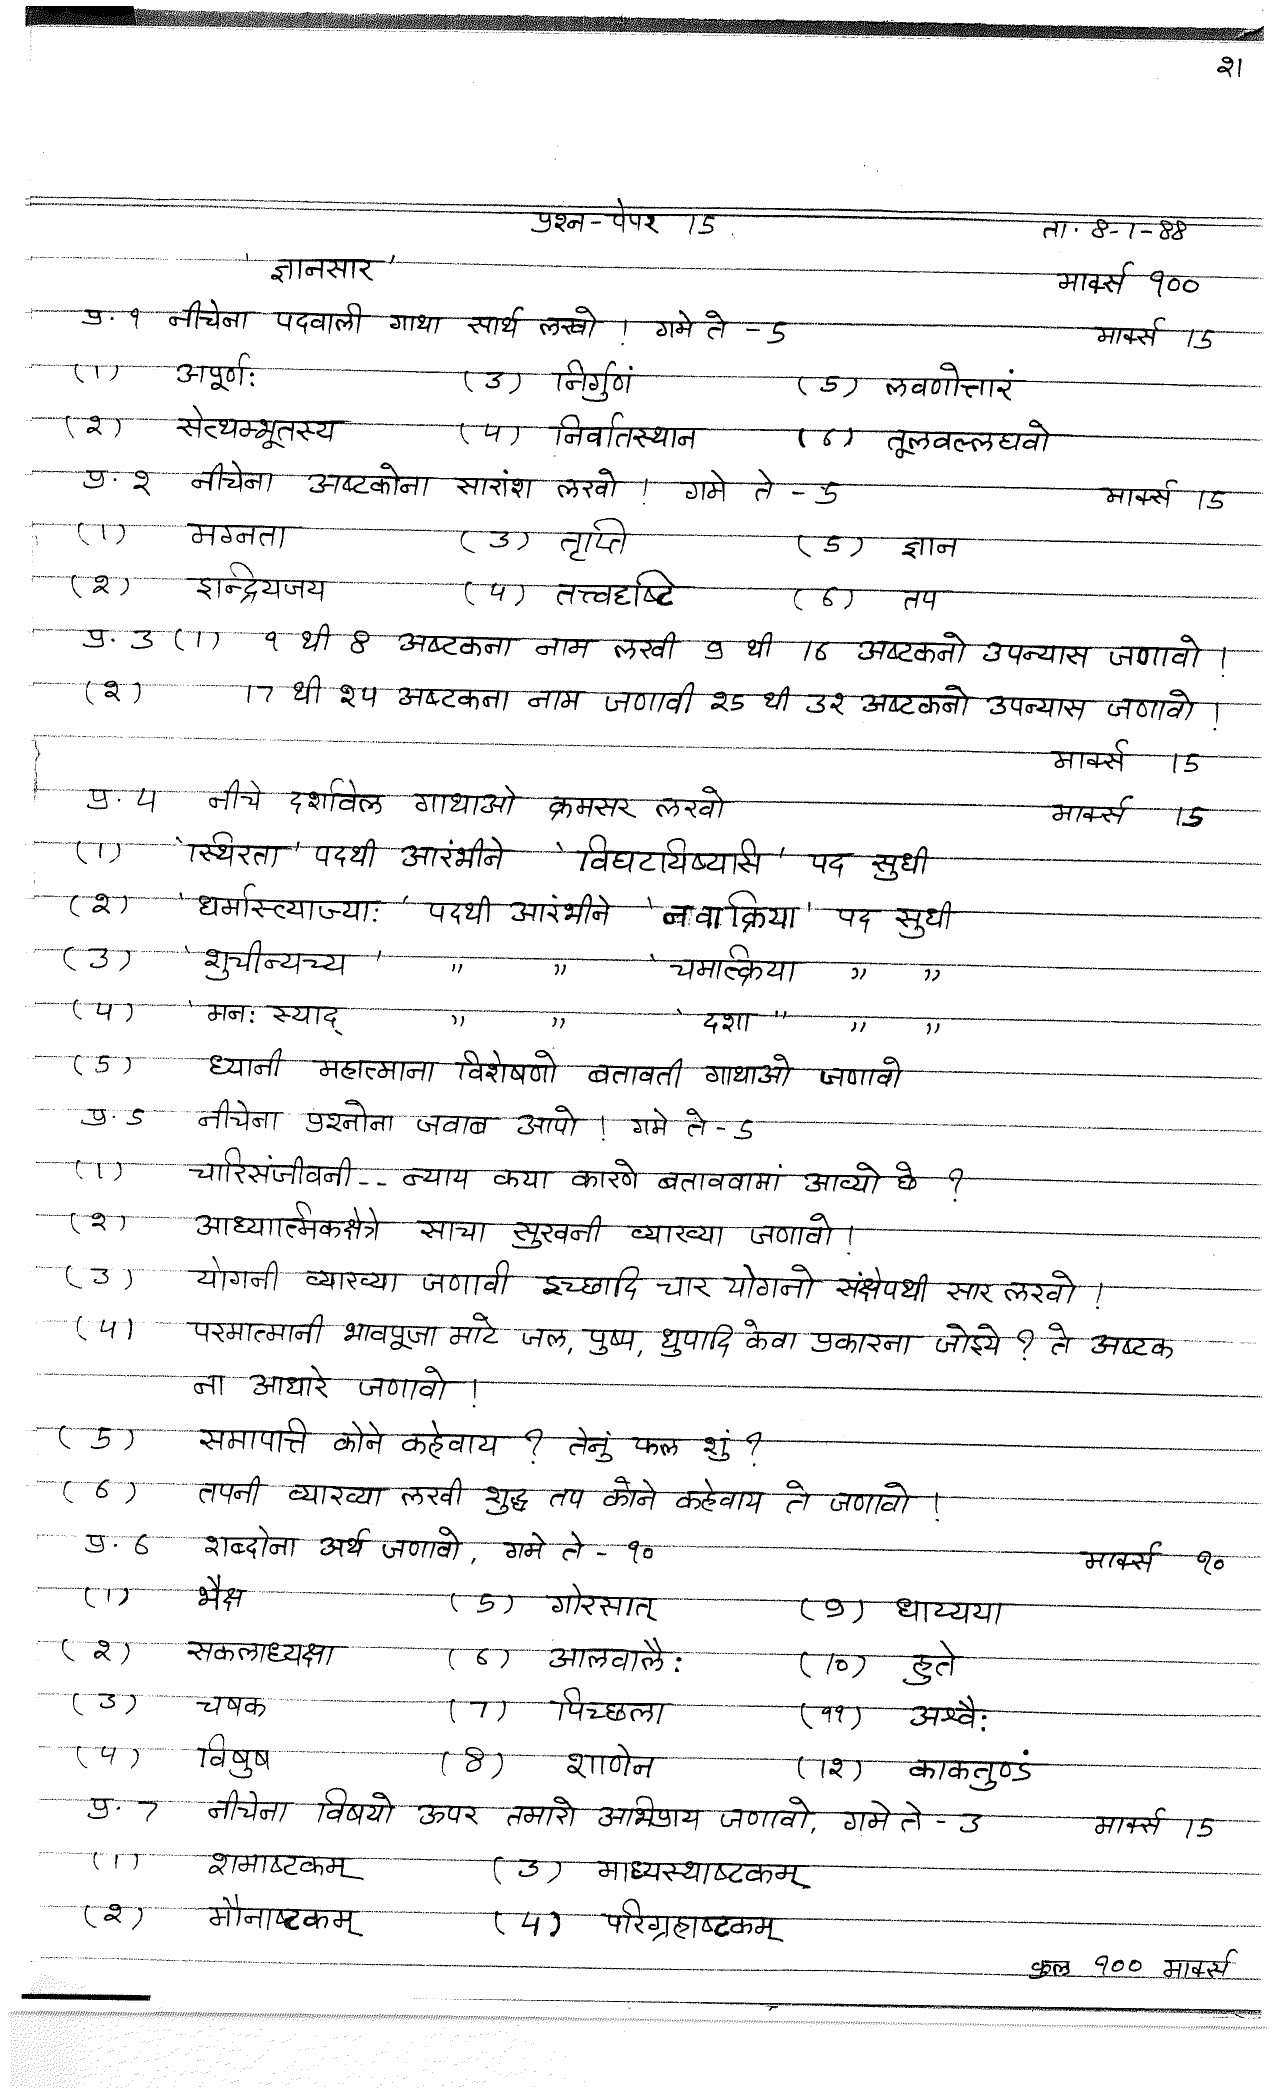 २१
प्रश्न-पेपर 15 ता. 8-1-88
'ज्ञानसार' मार्क्स १००
प्र. १ नीचेना पदवाली गाथा सार्थ लखो ! गमे ते - 5 मार्क्स 15
(1) अपूर्णः (3) निर्गुणं (5) लवणोत्तारं
(२) सेत्थम्भूतस्य (4) निर्वातस्थान (6) तूलवल्लघवो
प्र. २ नीचेना अष्टकोना सारांश लखो ! गमे ते - 5 मार्क्स 15
(1) मग्नता (3) तृप्ति (5) ज्ञान
(२) इन्द्रियजय (4) तत्त्वदृष्टि (6) तप
प्र. 3 (1) १ थी 8 अष्टकना नाम लखी 9 थी 16 अष्टकनो उपन्यास जणावो !
(२) 17 थी २4 अष्टकना नाम जणावी २5 थी 3२ अष्टकनो उपन्यास जणावो !
मार्क्स 15
प्र. 4 नीचे दर्शावेल गाथाओ क्रमसर लखो मार्क्स 15
(1) 'स्थिरता' पदथी आरंभीने 'विघटयिष्यसि' पद सुधी
(२) 'धर्मास्त्याज्याः' पदथी आरंभीने 'नवाक्रिया' पद सुधी
(3) 'शुचीन्यच्य' " " 'चमत्क्रिया " "
(4) 'मनः स्याद् " " 'दशा" " "
(5) ध्यानी महात्माना विशेषणो बतावती गाथाओ जणावो
प्र. 5 नीचेना प्रश्नोना जवाब आपो ! गमे ते - 5
(1) चारिसंजीवनी -- न्याय कया कारणे बताववामां आव्यो छे ?
(२) आध्यात्मिकक्षेत्रे साचा सुखनी व्याख्या जणावो !
(3) योगनी व्याख्या जणावी इच्छादि चार योगनो संक्षेपथी सार लखो !
(4) परमात्मानी भावपूजा माटे जल, पुष्प, धुपादि केवा प्रकारना जोइये ? ते अष्टक
ना आधारे जणावो !
(5) समापत्ति कोने कहेवाय ? तेनुं फल शुं ?
(6) तपनी व्याख्या लखी शुद्ध तप कोने कहेवाय ते जणावो !
प्र. 6 शब्दोना अर्थ जणावो, गमे ते - १० मार्क्स १०
(1) भैक्ष (5) गोरसात् (9) धाय्यया
(२) सकलाध्यक्षा (6) आलवालैः (10) हुते
(3) चषक (7) पिच्छला (११) अश्वैः
(4) विषुष (8) शाणेन (1२) काकतुण्डं
प्र. 7 नीचेना विषयो ऊपर तमारो अभिप्राय जणावो, गमे ते - 3 मार्क्स 15
(1) शमाष्टकम् (3) माध्यस्थाष्टकम्
(२) मौनाष्टकम् (4) परिग्रहाष्टकम्
कुल १०० मार्क्स